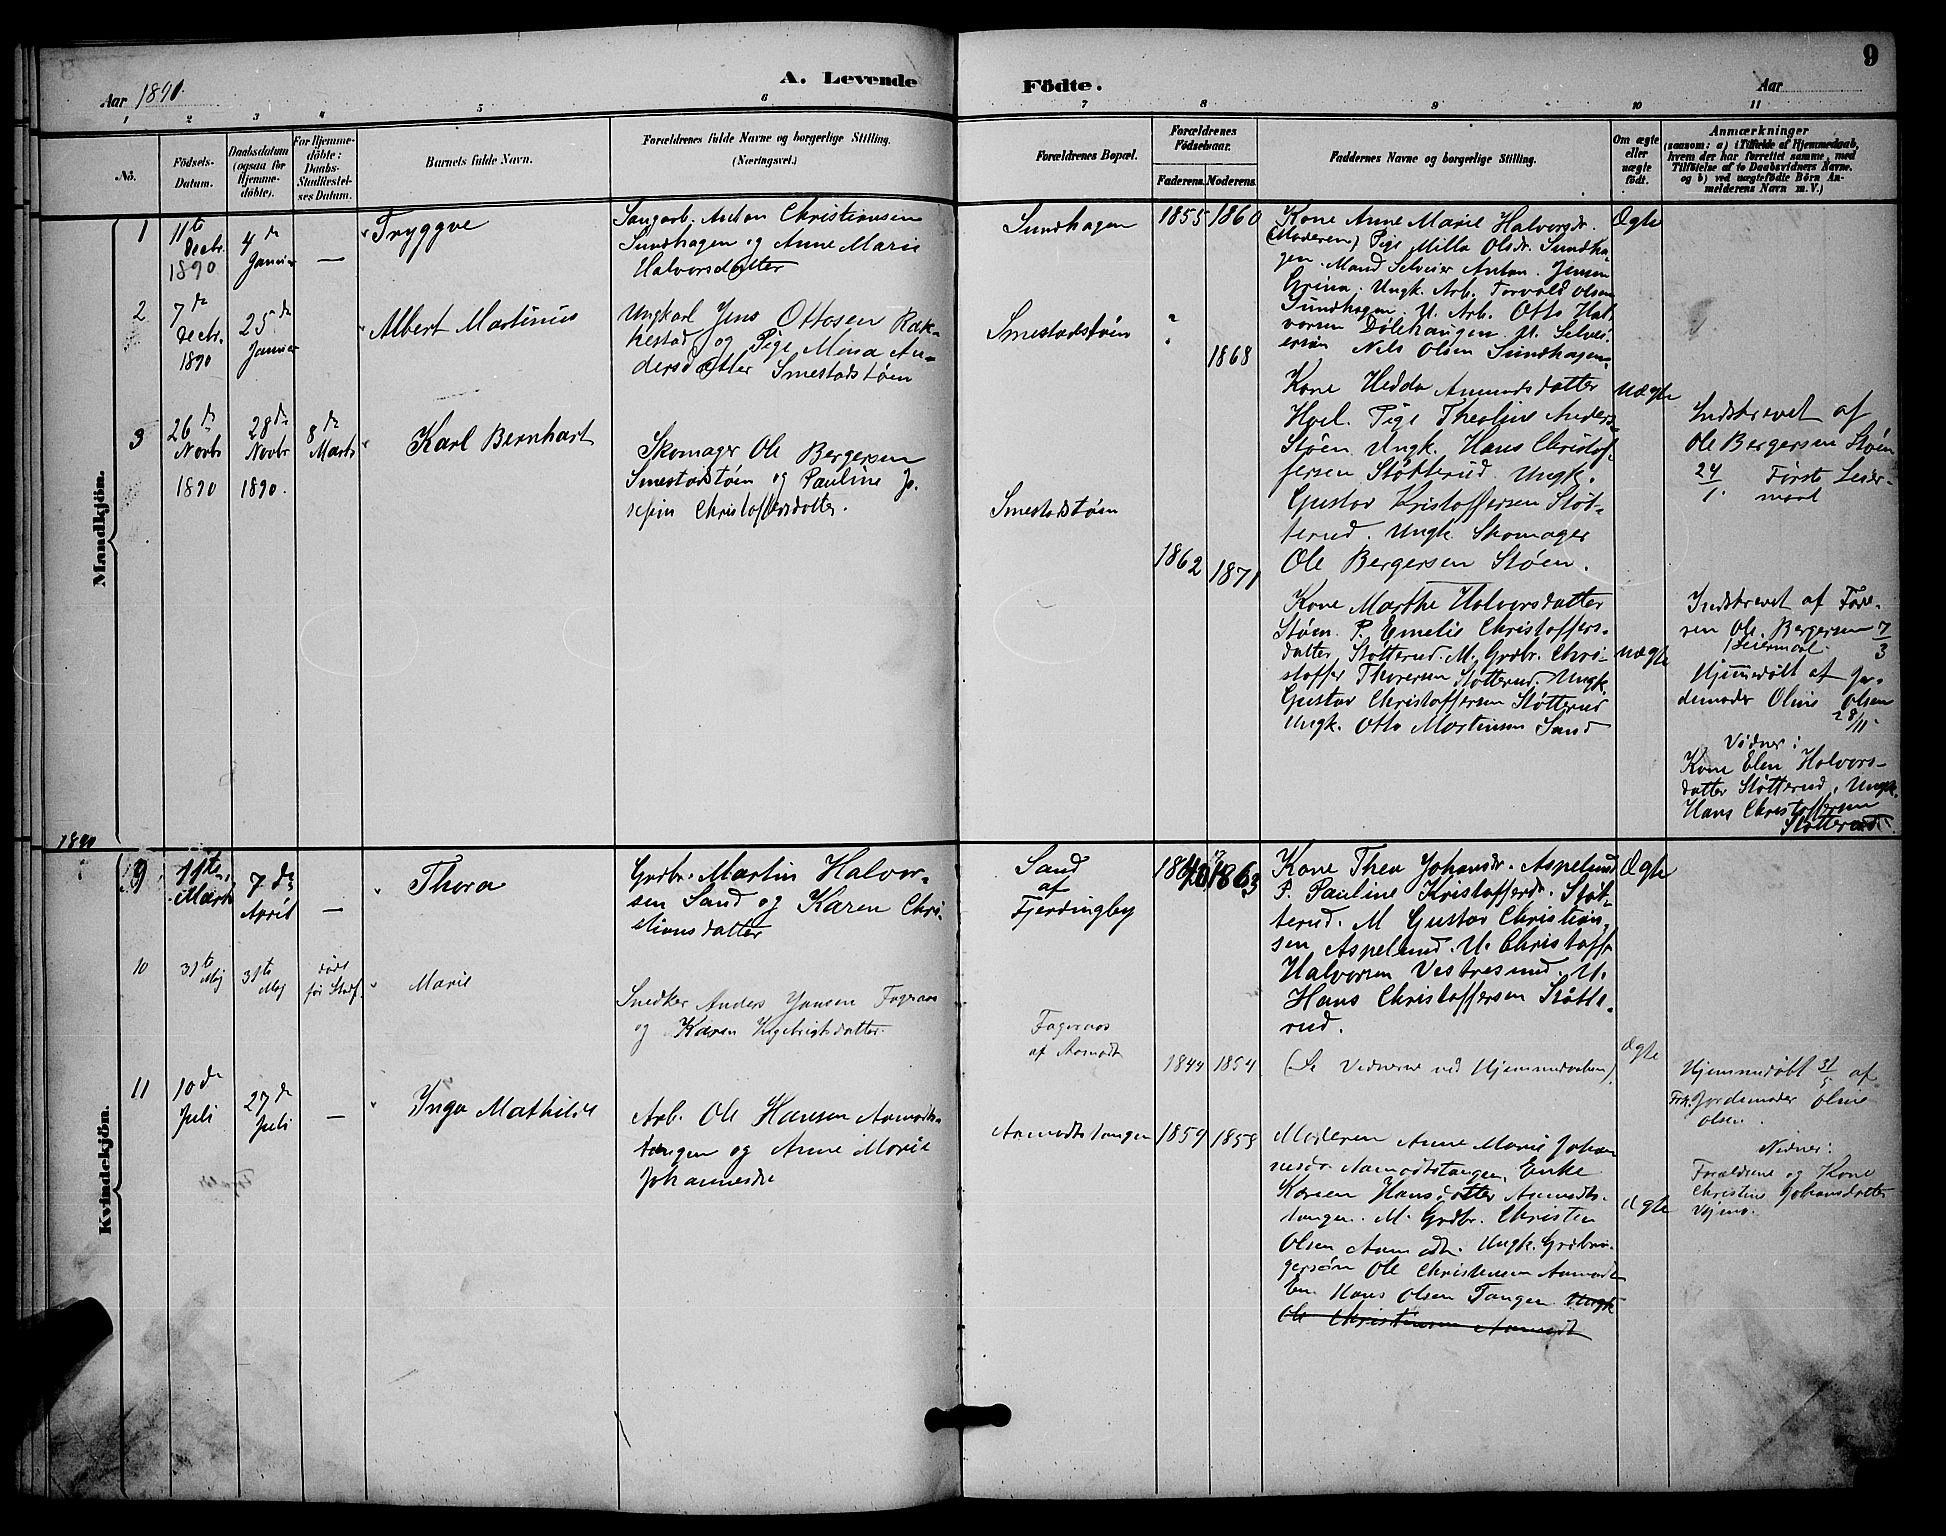 9
A. Levende Födte.
Aar 1891.
Aar
1 2 3 4 5 6 7 8 9 10 11
No.
Födsels-
Datum.
Daabsdatum
(ogsaa for
Hjemme-
döbte).
For Hjemme-
döbte:
Daabs-
Stadfæstel-
ses Datum.
Barnets fulde Navn.
Forældrenes fulde Navne og borgerlige Stilling.
(Næringsvei.)
Forældrenes Bopæl.
Forældrenes
Födselsaar.
Faderens.
Moderens.
Faddernes Navne og borgerlige Stilling.
Om ægte
eller
uægte
født.
Anmærkninger
(saasom: a) i Tilfælde af Hjemmedaab,
hvem der har forrettet samme, med
Tilføielse af to Daabsvidners Navne,
og b) ved uægtefödte Börn An-
melderens Navn m. V.)
Mandkjön.
1
11te
Decbr.
1890
4de
Januar
—
Tryggve
Sangarb. Anton Christiansen
Sundhagen og Anne Marie
Halvorsdatter
Sundhagen
1855
1860
Kone Anne Marie Halvorsdr.
(Moderen) Pige Milla Olsdr. Sundha-
gen. Mand Selveier Anton Jensen
Grina. Ungk. Arb. Torvald Olsen
Sundhagen. U. Arb. Otto Hal-
vorsen Dølehaugen U. Selvei-
ersøn Nils Olsen Sundhagen
Ægte
2
7de
Decbr.
1890
25de
Januar
Albert Martinius
Ungkarl Jens Ottosen Rak-
kestad og Pige Mina An-
dersdatter Smestadstøen
Smestadstøen
1868
Kone Hedda Amundsdatter
Hoel. Pige Theoline Anders.
Støen Ungk. Hans Christof-
fersen Støtterud Ungk.
Gustav Kristoffersen Støt-
terud. Ungk. Skomager
Ole Bergersen Støen.
Uægte
Indskrevet af
Ole Bergersen Støen
24/1. Første Leier-
maal
3
26de
Novbr
1890
28de
Novbr
1890.
8de
Marts
Karl Bernhart
Skomager Ole Bergersen
Smestadstøen og Pauline Jo-
sefin Christoffersdatter.
Smestadstøen
1862
1871
Kone Marthe Halvorsdatter
Støen. P. Emelie Christoffers-
datter Støtterud. M. Grdbr. Chri-
stoffer Thoresen Støtterud. Ungk.
Gustav Christoffersen Støtterud
Ungk. Otto Martinsen Sand
Uægte
Indskrevet af Fare-
ren Ole Bergersen 7/3
Leiermaal.
Hjemmedøbt af Jor-
demoder Oline Olsen
28/11.
Vidner:
Kone Elen Halvors-
datter Støtterud, Ungk.
Hans Christoffersen
Støtterud
1890
Kvindekjön.
9
11te
Marts
7de
April
—
Thora
Grdbr. Martin Halvor-
sen Sand og Karen Chri-
stiansdatter
Sand
af
Fjerdingby
1863
Kone Thea Johansdr. Aspelund
P. Pauline Kristofferdr. Støt-
terud. M Gustav Christian-
sen Aspelund. U. Christoffr
Halvorsen Vestresund. U.
Hans Christoffersen Støtte-
rud.
Ægte
10
31te
Maj
31te
Maj
døde
før Stadf
Marie
Snedker Anders Jensen Fageraas
og Karen Ingebrigtsdatter.
Fageraas
af Aamodt
1844
1854
(Se Vidnerne ved Hjemmedaaben)
Ægte
Hjemmedøbt 31/5 af
Frk. Jordemoder Oline
Olsen.
Vidner:
Forældrene og Kone
Christine Johansdatter
11
10de
Juli
27de
Juli
—
Inga Mathilde
Arb. Ole Hansen Aamodts-
tangen og Anne Marie
Johannesdr
Aamodtstangen
1859
1858
Moderen Anne Marie Johan-
nesdr. Aamodtstangen, Enke
Karen Hansdatter Aamodts-
tangen. M. Grdbr. Christen
Olsen Aamodt. Ungk. Grdbru-
gersøn Ole Christensen Aamodt
Em. Hans Olsen Tangen. Ungk
Ole Christensen Aamodt
Ægte